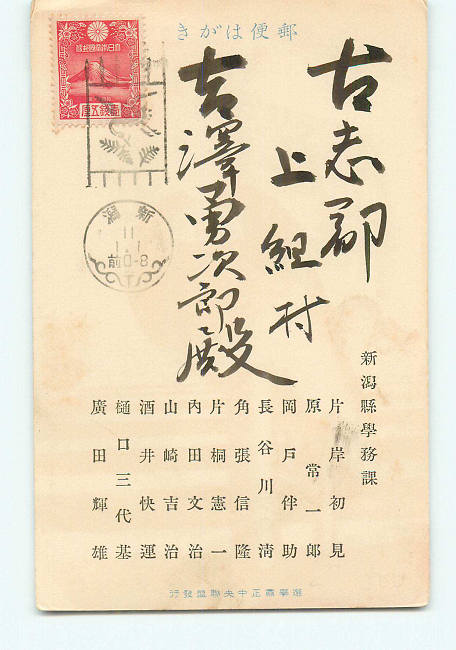 郵便はがき
古志郡
上組村
吉澤勇次郎殿
壹錢五厘
新潟
11
1.1
前0-8
新潟縣學務課
片岸初見
原常一郎
岡戸伴助
長谷川清
角張信隆
片桐憲一
内田文治
山崎吉治
酒井快運
樋口三代基
廣田輝雄
選擧肅正中央聯盟發行